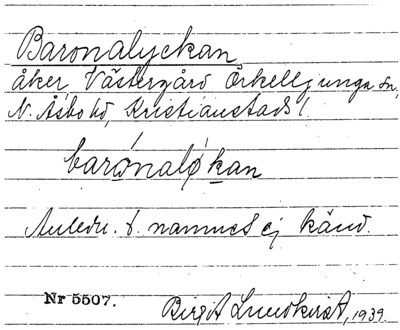 Baronalyckan
åker Västergård Örkelljunga sn,
N. Åsbo hd, Kristianstads l.
barónalø̀kan
Anledn. t. namnet ej känd.
Nr 5507.
Birgit Lundkvist, 1939.